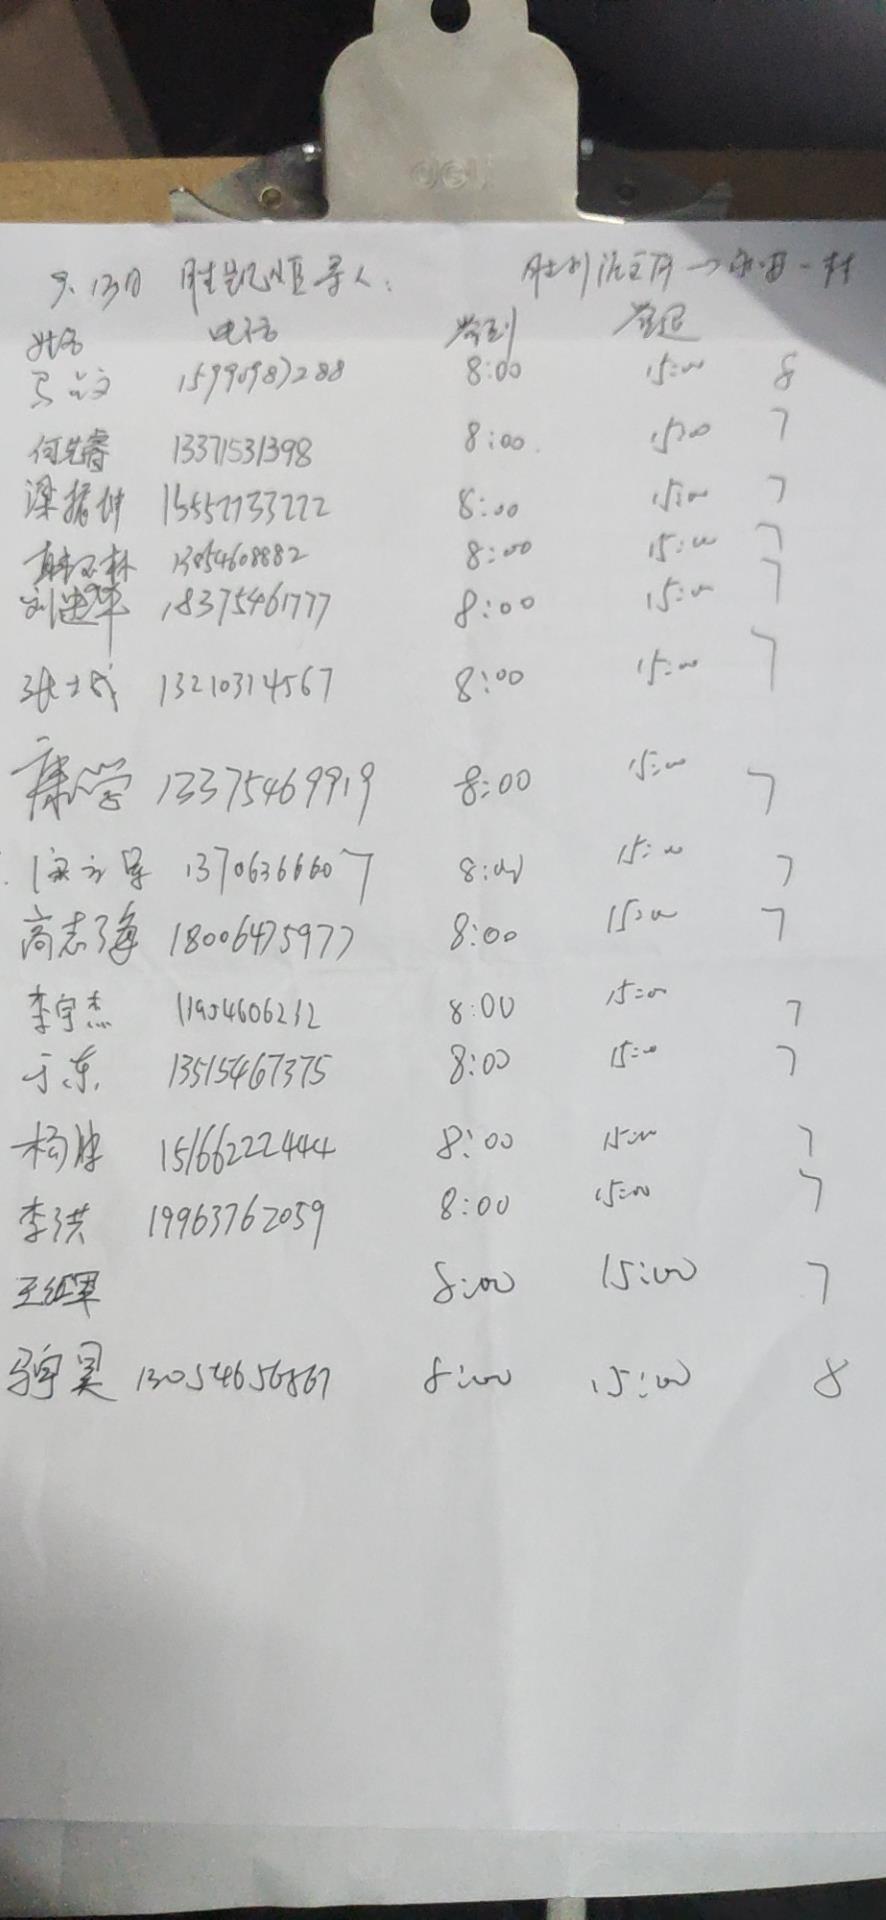 deli
9.13日 胜凯 寻人: 胜利 一村
姓名 电话 签到 签退
马 文 15990987288 8:00 15:00 8
何先睿 13371531398 8:00 15:00 7
梁振坤 8:00 15:00 7
林 13054608882 8:00 15:00 7
刘建华 18375461777 8:00 15:00 7
张士成 13210314567 8:00 15:00 7
康 学 13375469919 8:00 15:00 7
13706366607 8:00 15:00 7
高志海 18006475977 8:00 15:00 7
李宇杰 8:00 15:00 7
于东 13515467375 8:00 15:00 7
杨胜 15166222444 8:00 15:00 7
李洪 19963762059 8:00 15:00 7
王红军 8:00 15:00 7
昊 13054656867 8:00 15:00 8